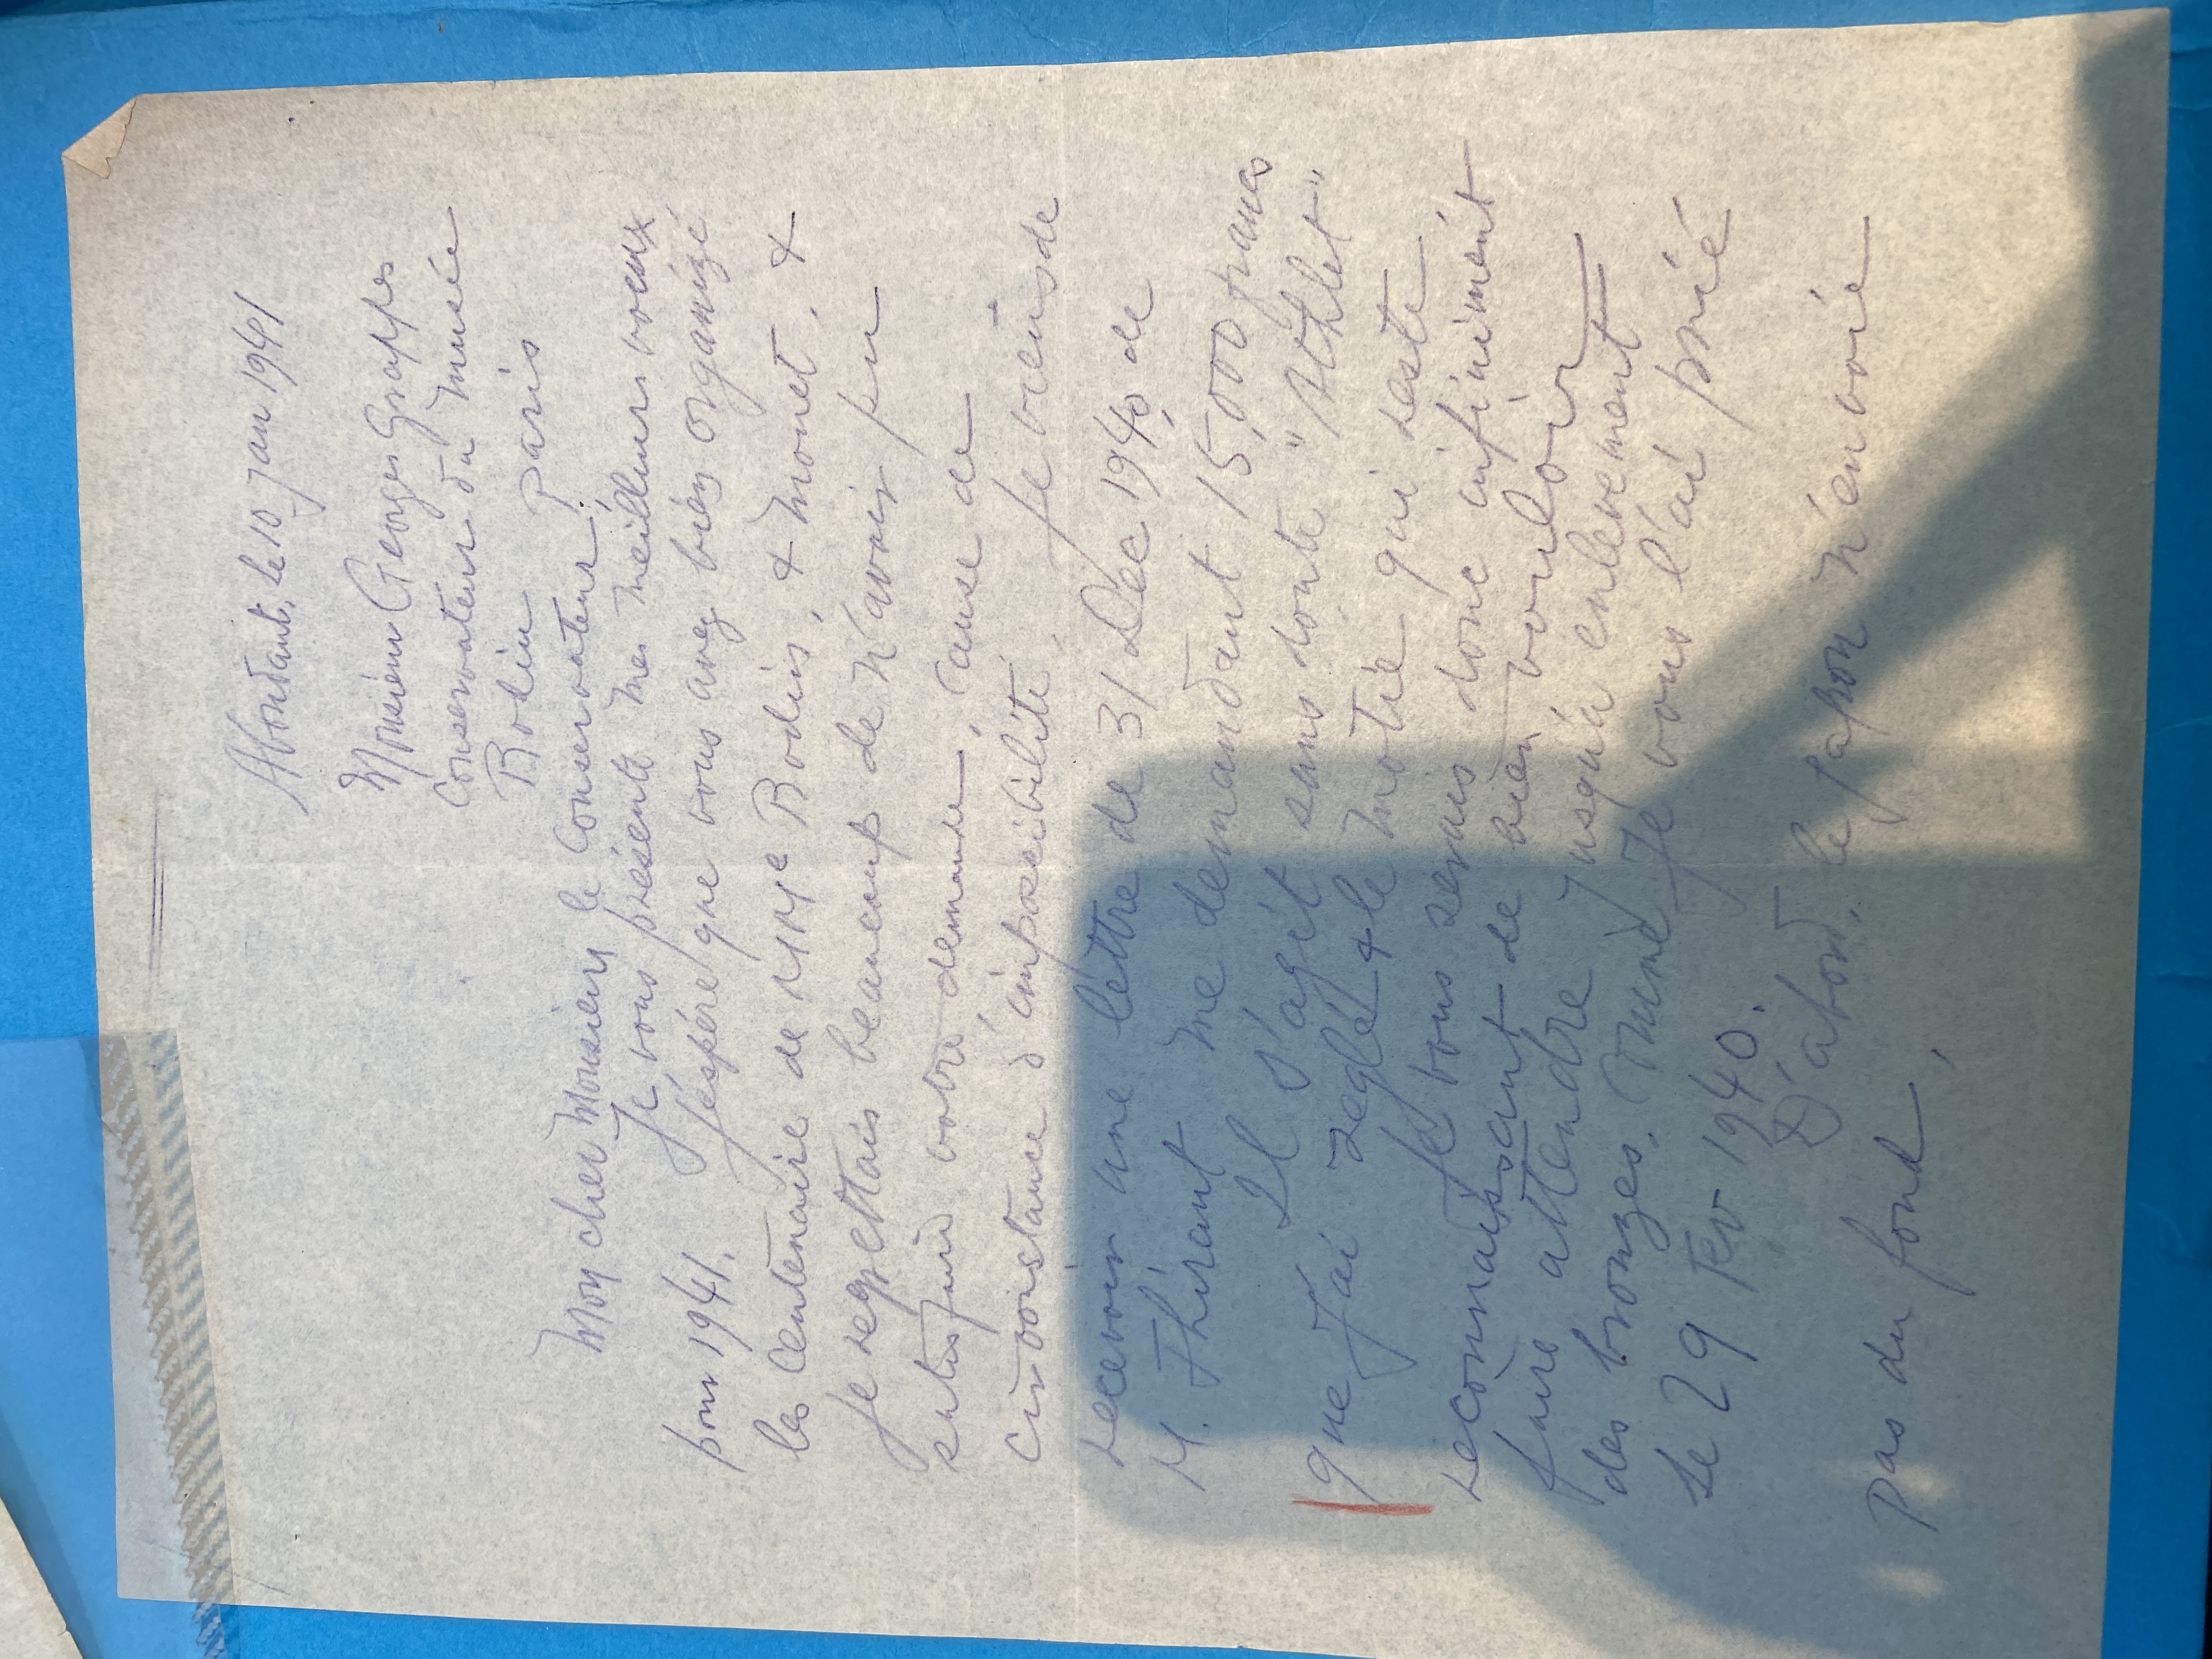 Abondant, le 10 Jan 1941
Monsieur Georges Grappes
Conservateur du Musée
Rodin Paris
Mon cher Monsieur le Conservateur,
Je vous présente mes meilleurs voeux
pour 1941. J'éspére que vous avez bien organizé
les Centenaire de MMe Rodin, & Monet, &
Je regrettais beaucoup de n'avoir pu
votre demande, cause de
d'impossibilité, Je viens de
recevoir une lettre de 31 Dec 1940 de
M. Thirant me demandant 15,000 francs
Il s'agit sans doute "Athlet"
que J'ai reglé & le motié qui reste
Je vous serais donc infiniment
reconnaissant de bien vouloir
faire attendre Jusqu'a enlevement
des bronzes, Comme Je vous l'ai prié
le 29 Fev 1940.
D'abord, le Japon n'envoié
pas du fond,